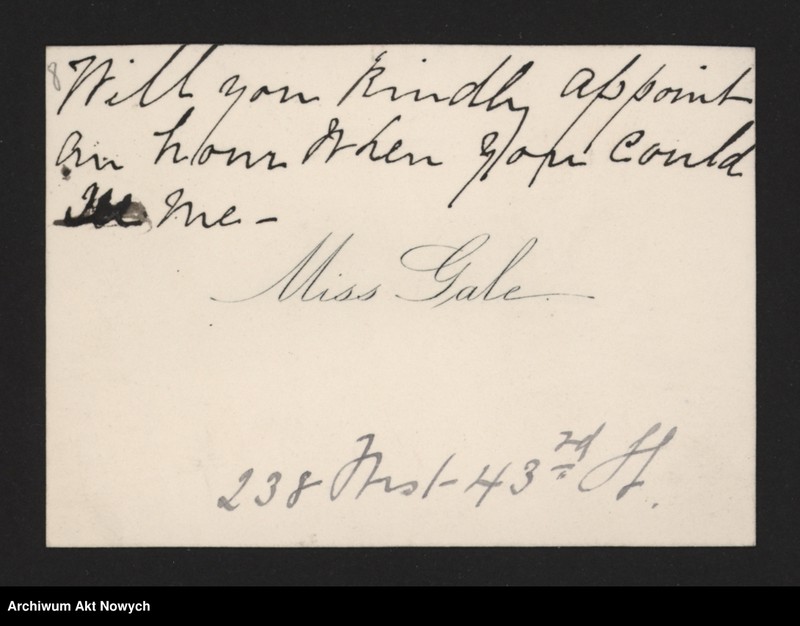 8
Will you kindly appoint
an hour when you could
see me -
Miss Gale
238 West - 43rd St.
Archiwum Akt Nowych